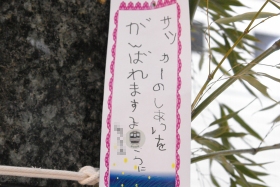 サッカーのしあいを
がんばれますように